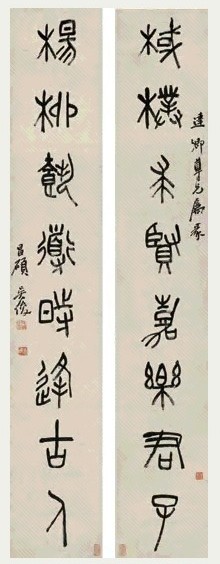 逵卿尊兄屬篆
棫樸求賢嘉樂君子
楊柳時逢古人
昌碩吳俊